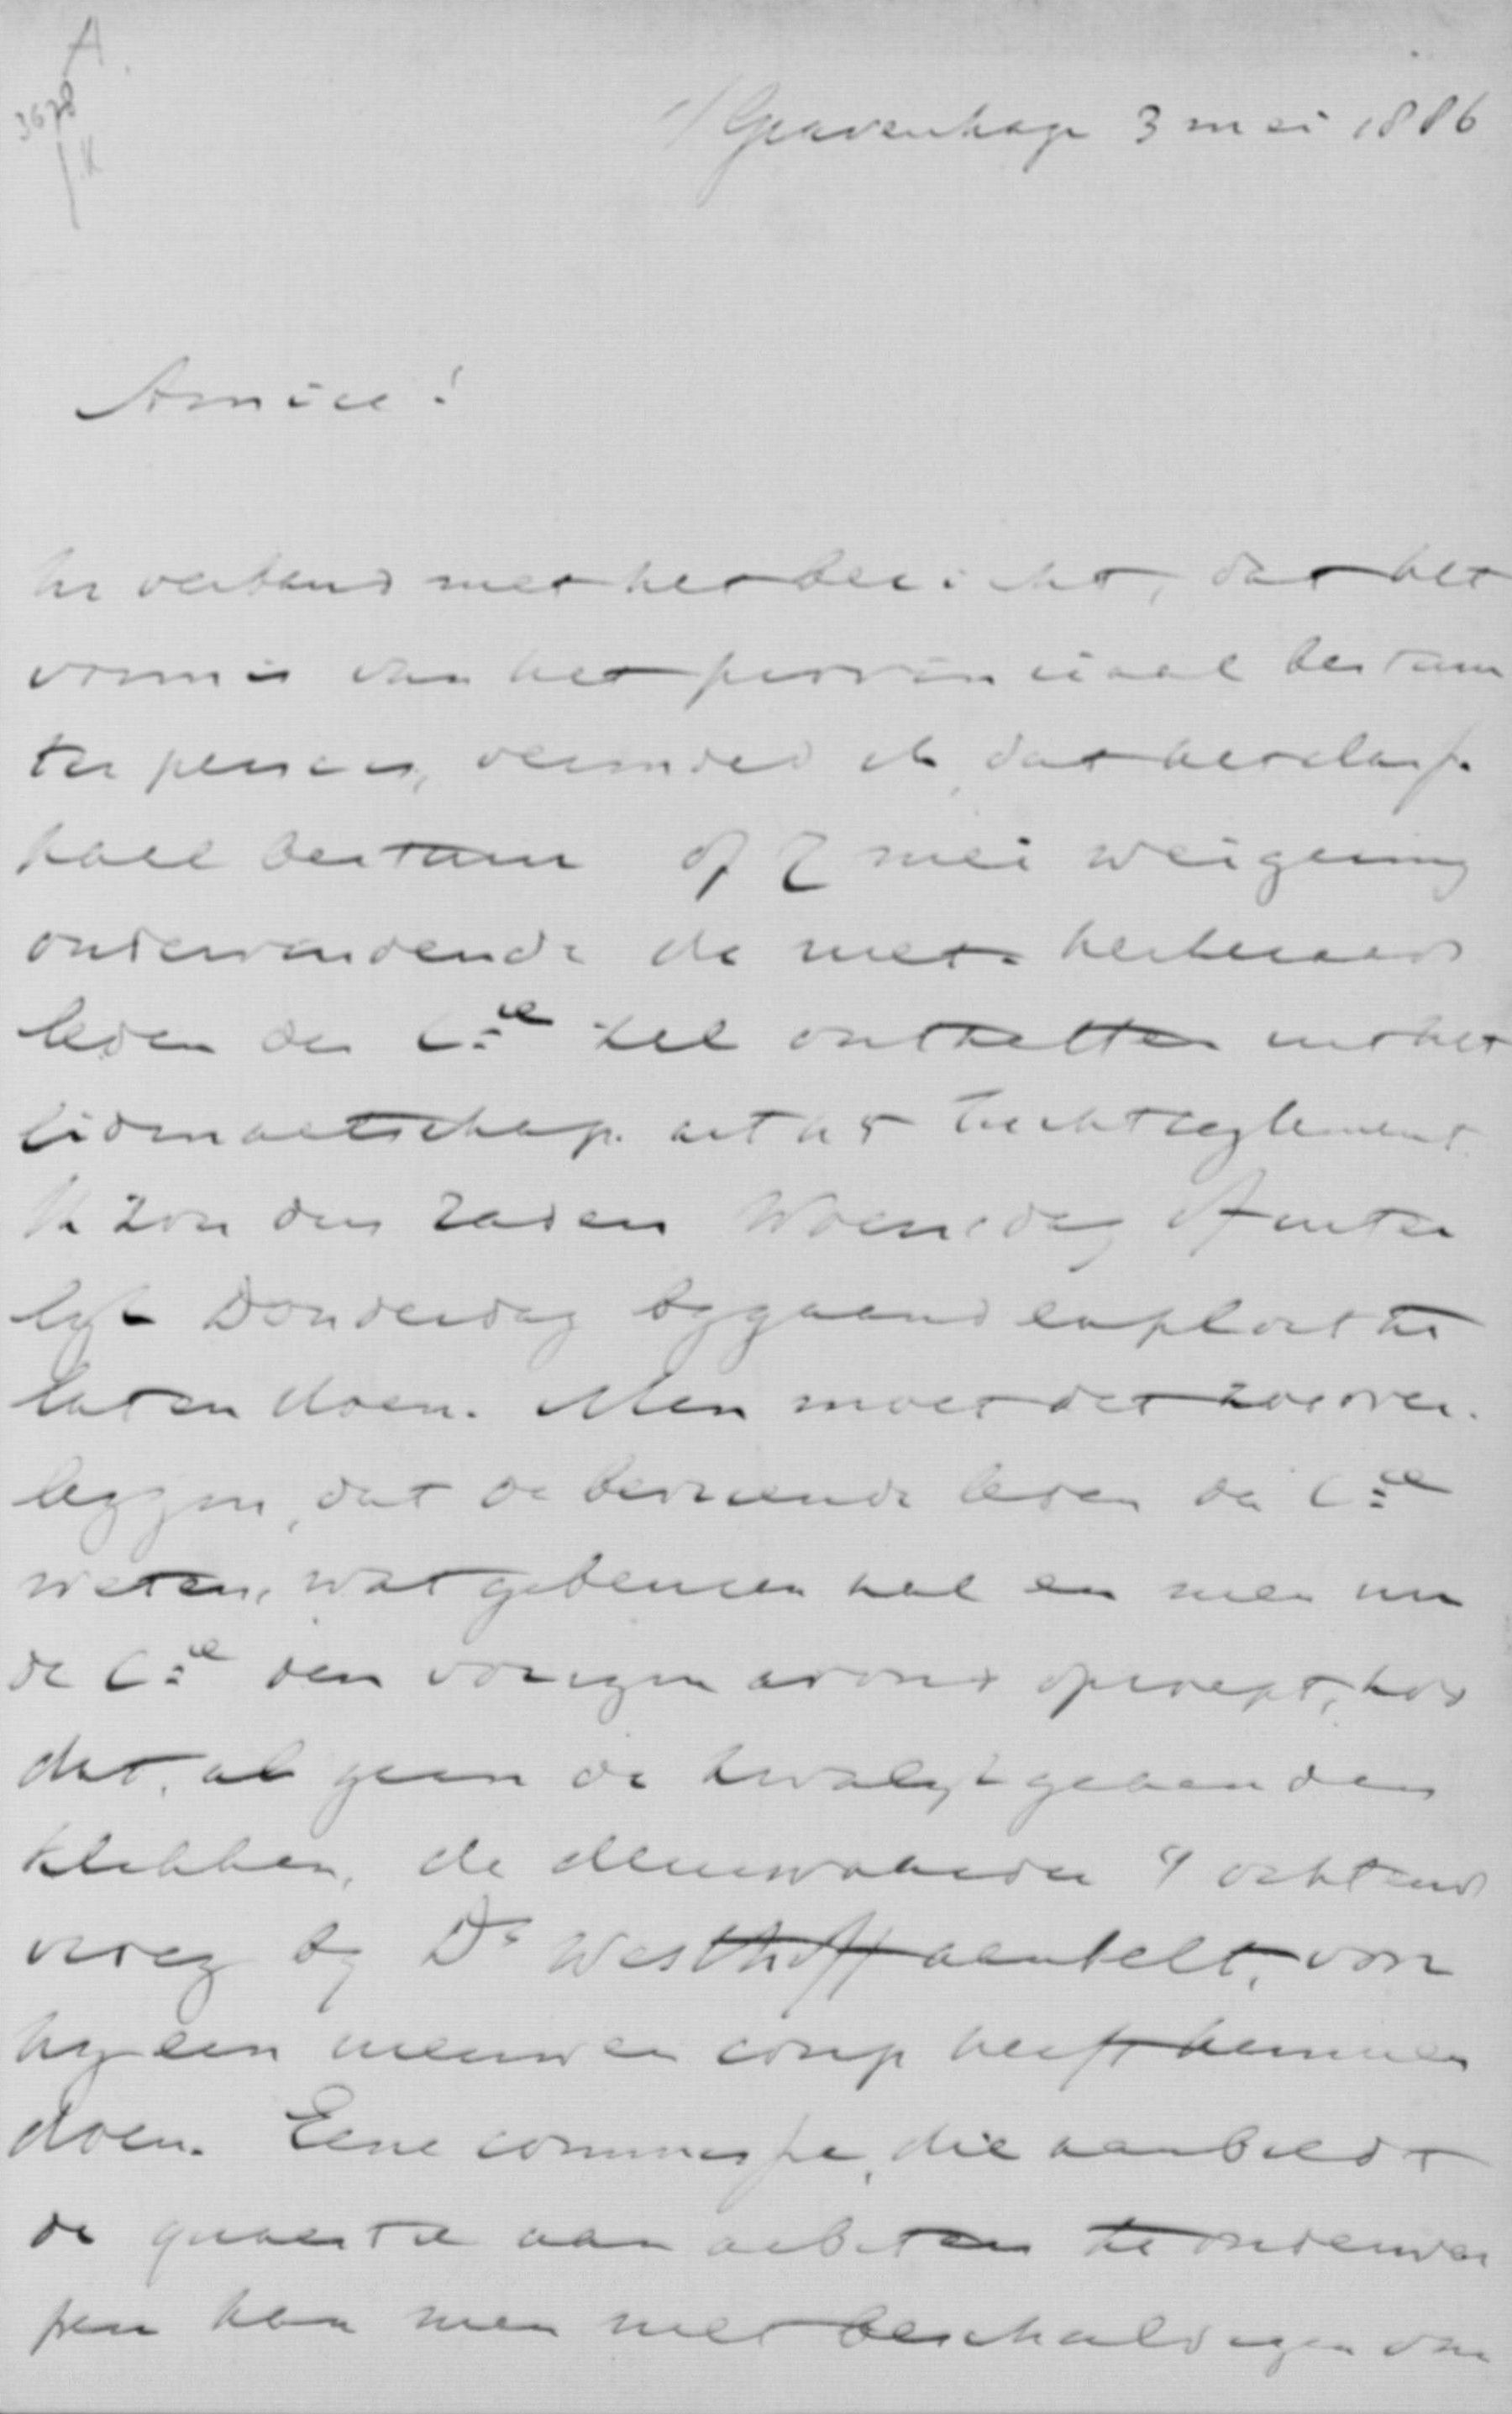 A
3678
K
's Gravenhage 3 mei 1886
Amice!
In verband met het bericht, dat het
vonnis van het provinciaal bestuur
ter perse is, vermoed ik, dat het classi-
kaal bestuur op 7 mei weigering
ondervindende de niet-
leden der Cie zal ontzetten uit het
lidmaatschap. art 45 Tuchtreglement.
Ik zou dus raden Woensdag of uiter
lijk Donderdag bijgaand exploit te
laten doen. Men moet dat zoo over-
leggen, dat de leden der Cie
weten, wat gebeuren zal en men nu
de Cie den vorigen avond oproept, zoo
dat, al gaan de kwalijkgezinden
klikken, de deurwaarder 's ochtends
vroeg bij Ds Westhoff aanbelt, voor
hij een nieuwen coup heeft kunnen
doen. Eene commissie, die aanbiedt
de quaestie aan arbiters te onderwer
pen kan men niet beschuldigen van